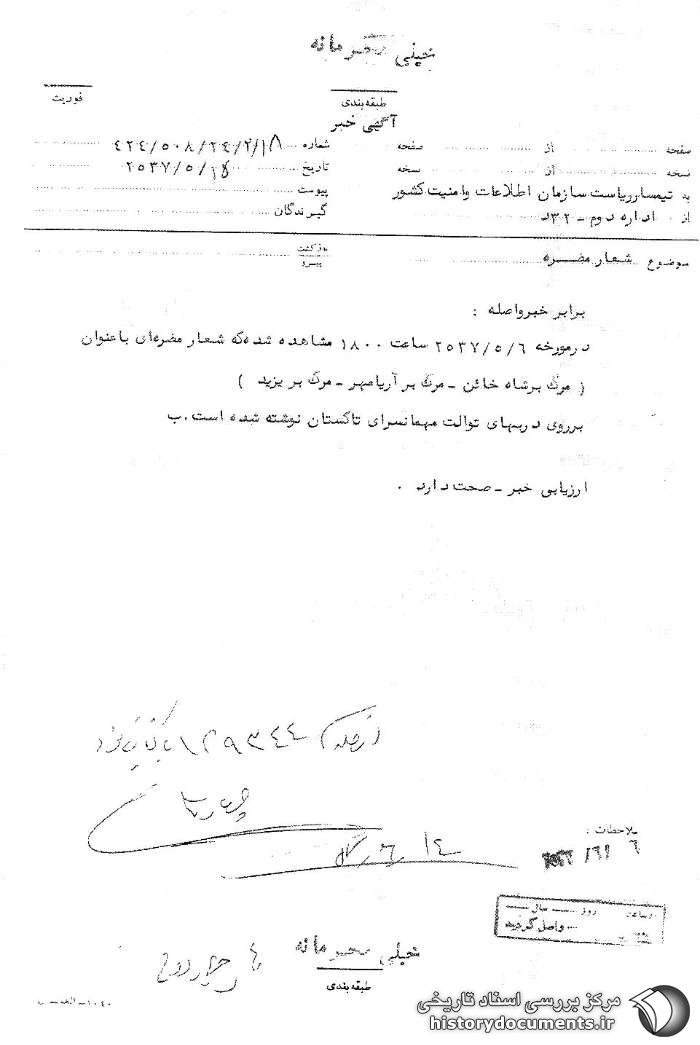 خیلی محرمانه
فوریت
طبقه‌بندی
آگهی خبر
صفحه از صفحه شماره ۴۲۴/۵۰۸/۲۴/۲/۱۸
نسخه از نسخه تاریخ ۲۵۳۷/۵/۱۵
به تیمسار ریاست سازمان اطلاعات وامنیت کشور پیوست
از اداره دوم - ۳۲د گیرندگان
موضوع شعار مضره بازگشت
پیرو
برابر خبر واصله :
درمورخه ۲۵۳۷/۵/۶ ساعت ۱۸۰۰ مشاهده شده‌که شعار مضره‌ای باعنوان
( مرگ برشاه خائن - مرگ بر آریامهر - مرگ بر یزید )
برروی دربهای توالت مهمانسرای تاکستان نوشته شده است.ب
ارزیابی خبر - صحت دارد .
۱۲۹۳۴۴
ملاحظات :
۱۴
ساعت روز سال
واصل گردید
خیلی محرمانه
طبقه‌بندی
۱۰۴۰ - الف - س
مرکز بررسی اسناد تاریخی
historydocuments.ir